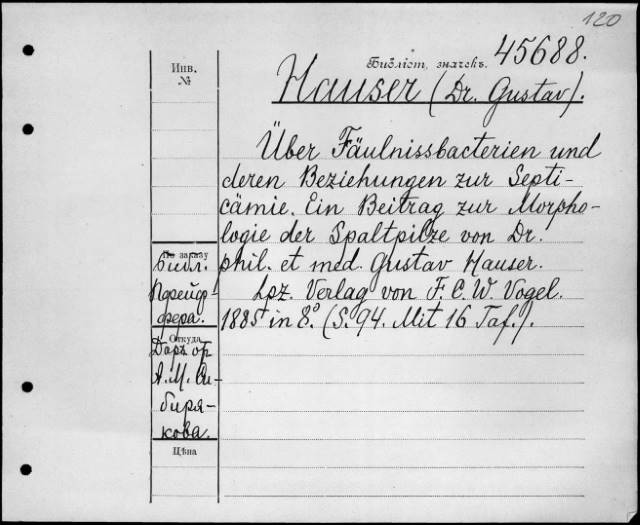 120
Библіот. значекъ. 45688.
Инв.
№
Hauser (Dr. Gustav).
Über Fäulnissbacterien und
deren Beziehungen zur Septi-
cämie. Ein Beitrag zur Morpho-
logie der Spaltpilze von Dr.
phil. et med. Gustav Hauser.
Lpz. Verlag von F. C. W. Vogel.
1885 in 8.° (S. 94. Mit 16 Taf.).
По заказу
Библ.
Пфейф-
фера.
Откуда
Даръ
А. М. Си-
биря-
кова.
Цѣна